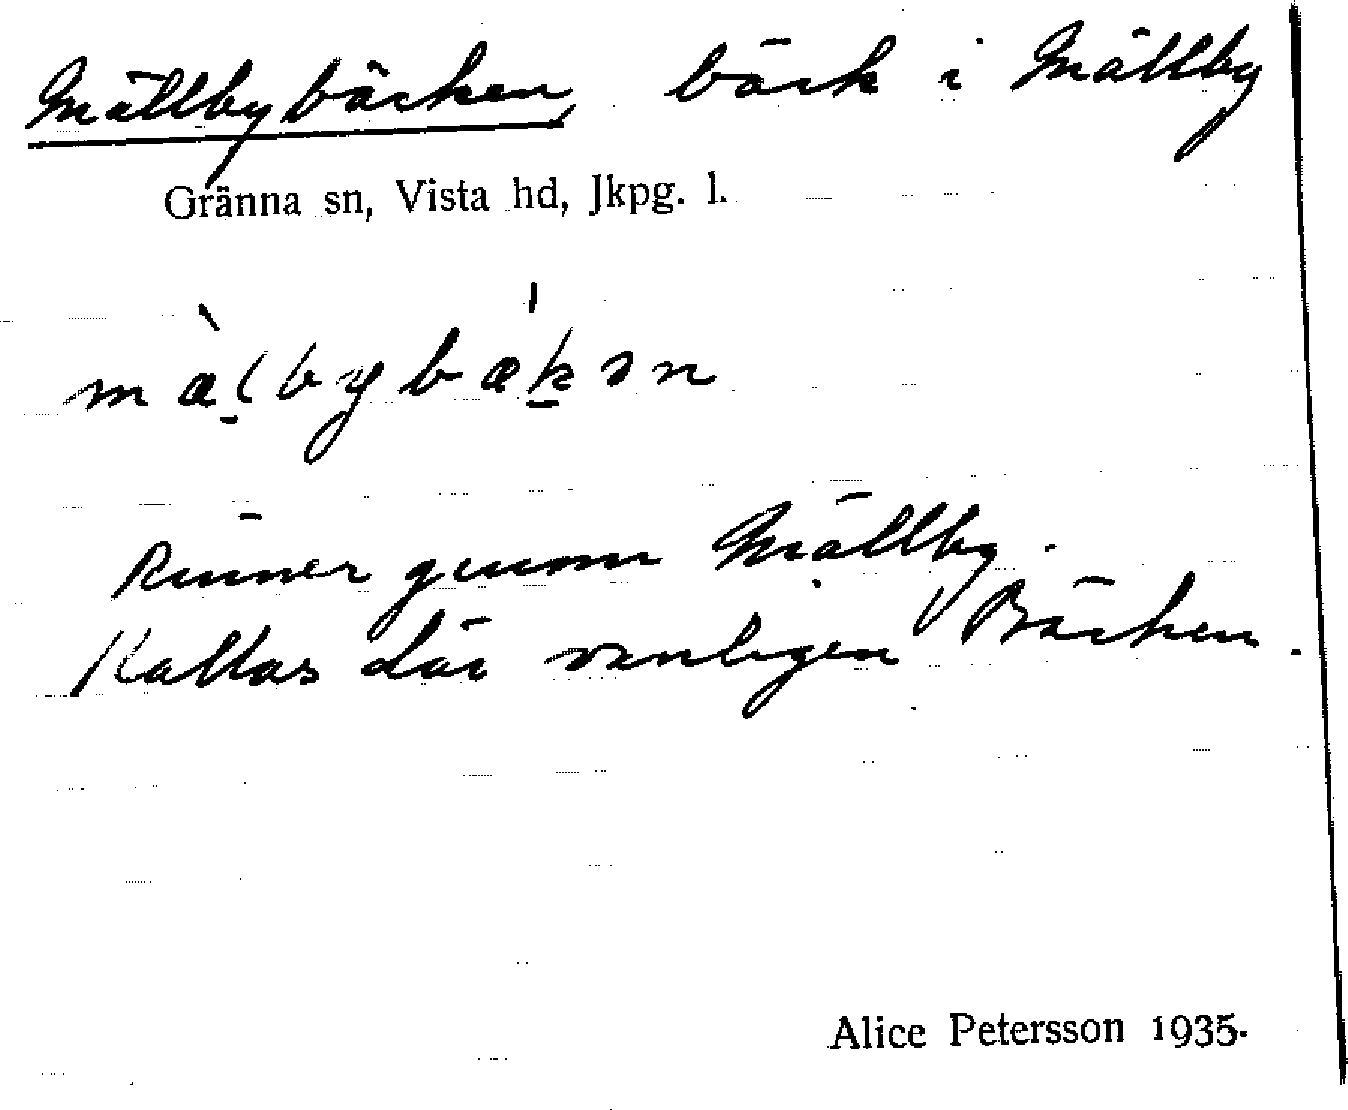 Mällbybäcken, bäck i Mällby
Gränna sn, Vista hd, Jkpg. l.
mæ̀l̠bybæ̍k̠ən
Rinner genom Mällby.
Kallas där vanligen Bäcken.
Alice Petersson 1935.